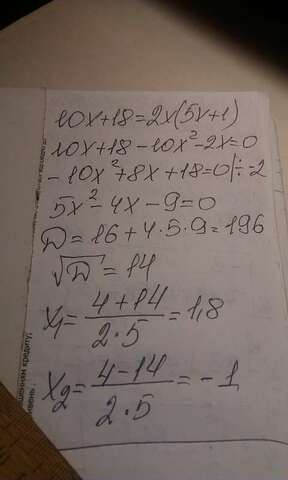 10x+18=2x(5x+1)
10x+18-10x²-2x=0
-10x²+8x+18=0|÷-2
5x²-4x-9=0
D=16+4·5·9=196
√D=14
x₁=(4+14)/(2·5)=1,8
x₂=(4-14)/(2·5)=-1
шенням кредиту;